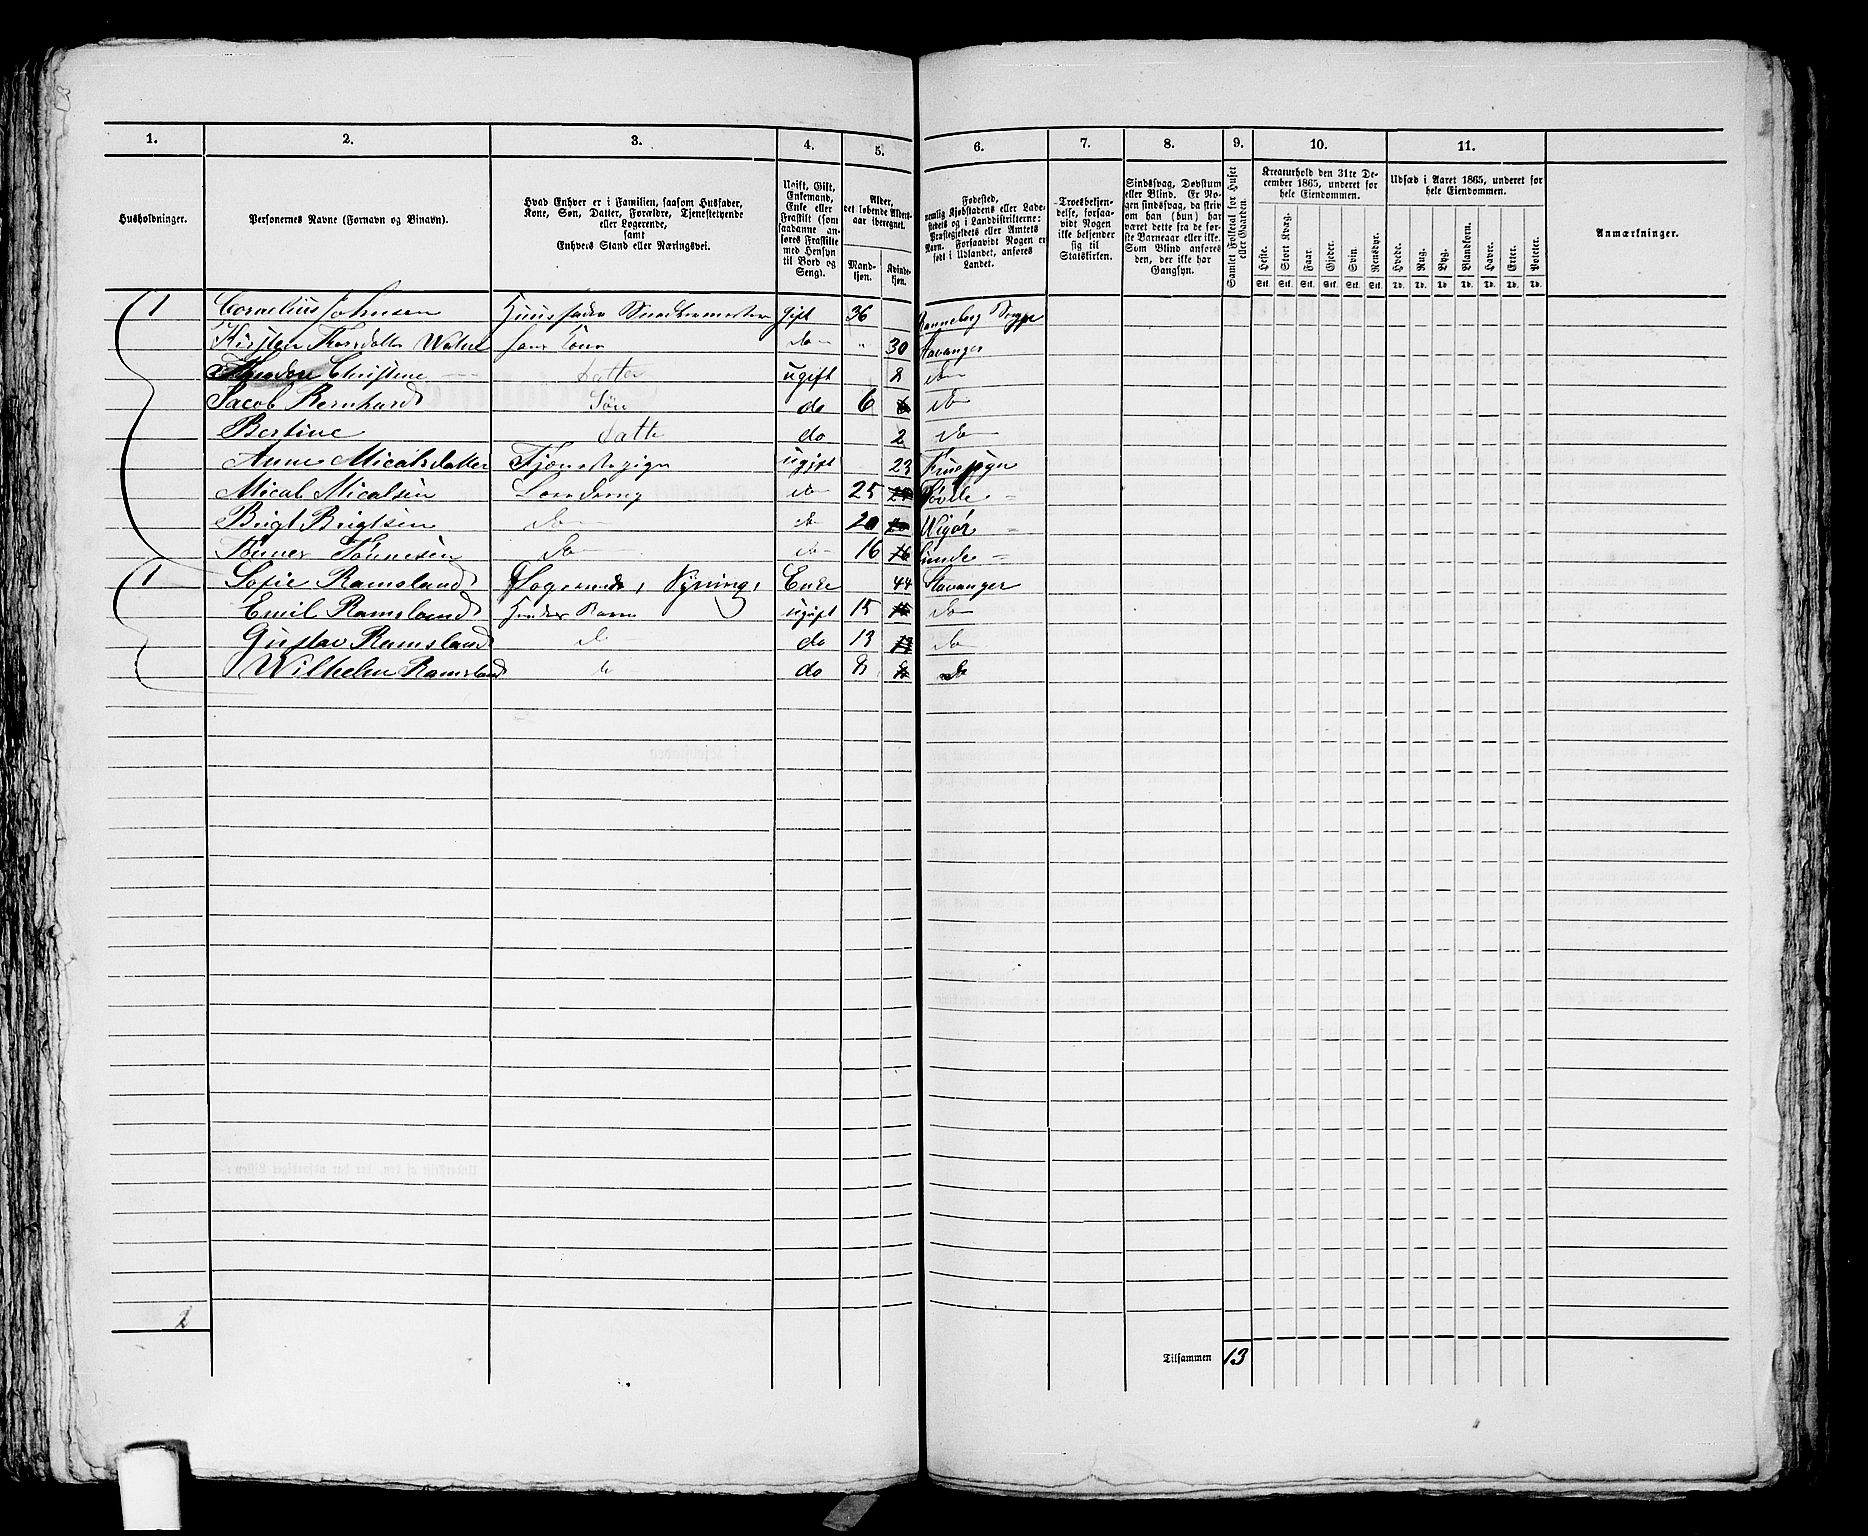 1. 2. 3. 4. 5. 6. 7. 8. 9. 10. 11.
Husholdninger.
Personernes Navne (Fornavn og Binavn).
Hvad Enhver er i Familien, saasom Husfader,
Kone, Søn, Datter, Forældre, Tjenestetyende
eller Logerende,
samt
Enhvers Stand eller Næringsvei.
Ugift, Gift,
Enkemand,
Enke eller
Fraskilt (som
saadanne an-
føres Fraskilte
med Hensyn
til Bord og
Seng).
Alder,
det løbende Alders-
aar iberegnet.
Mand-
kjøn.
Kvinde-
kjøn.
Fødested,
nemlig Kjøbstadens eller Lade-
stedets og i Landdistrikterne:
Præstegjeldets eller Amtets
Navn. Forsaavidt Nogen er
født i Udlandet, anføres
Landet.
Troesbekjen-
delse, forsaa-
vidt Nogen
ikke bekjender
sig til
Statskirken.
Sindssvag, Døvstum
eller Blind. Er No-
gen sindssvag, da skriv
om han (hun) har
været dette fra de før-
ste Barneaar eller ikke.
Som Blind anføres
den, der ikke har
Gangsyn.
Samlet Folketal for Huset
eller Gaarden.
Kreaturhold den 31te De-
cember 1865, underet for
hele Eiendommen.
Heste. Stort Kvæg. Faar. Gjeder. Svin. Rensdyr.
Stk. Stk. Stk. Stk. Stk. Stk.
Udsæd i Aaret 1865, underet for
hele Eiendommen.
Hvede. Rug. Byg. Blandkorn. Havre. Erter. Poteter.
Td. Td. Td. Td. Td. Td. Td.
Anmærkninger.
1 Cornelius Johnsen Huusfader gift 36
Kirsten do " 30 Stavanger
Christine Datter ugift 8 do
Jacob Bernhard Søn do 6 do
Bertine Datte do 2 do
Anne Micalsdatter ugift 23
Mical Micalsen do 25
Brigt Brigtsen do do 20
Tønnes Tønnesen do do 16
1 Sofie Ramsland Logerende, Syning, Enke 44 Stavanger
Emil Ramsland Hendes Barn ugift 15 do
Gustav Ramsland do do 13 do
Wilhelm Ramsland do do 8 do
2
Tilsammen 13